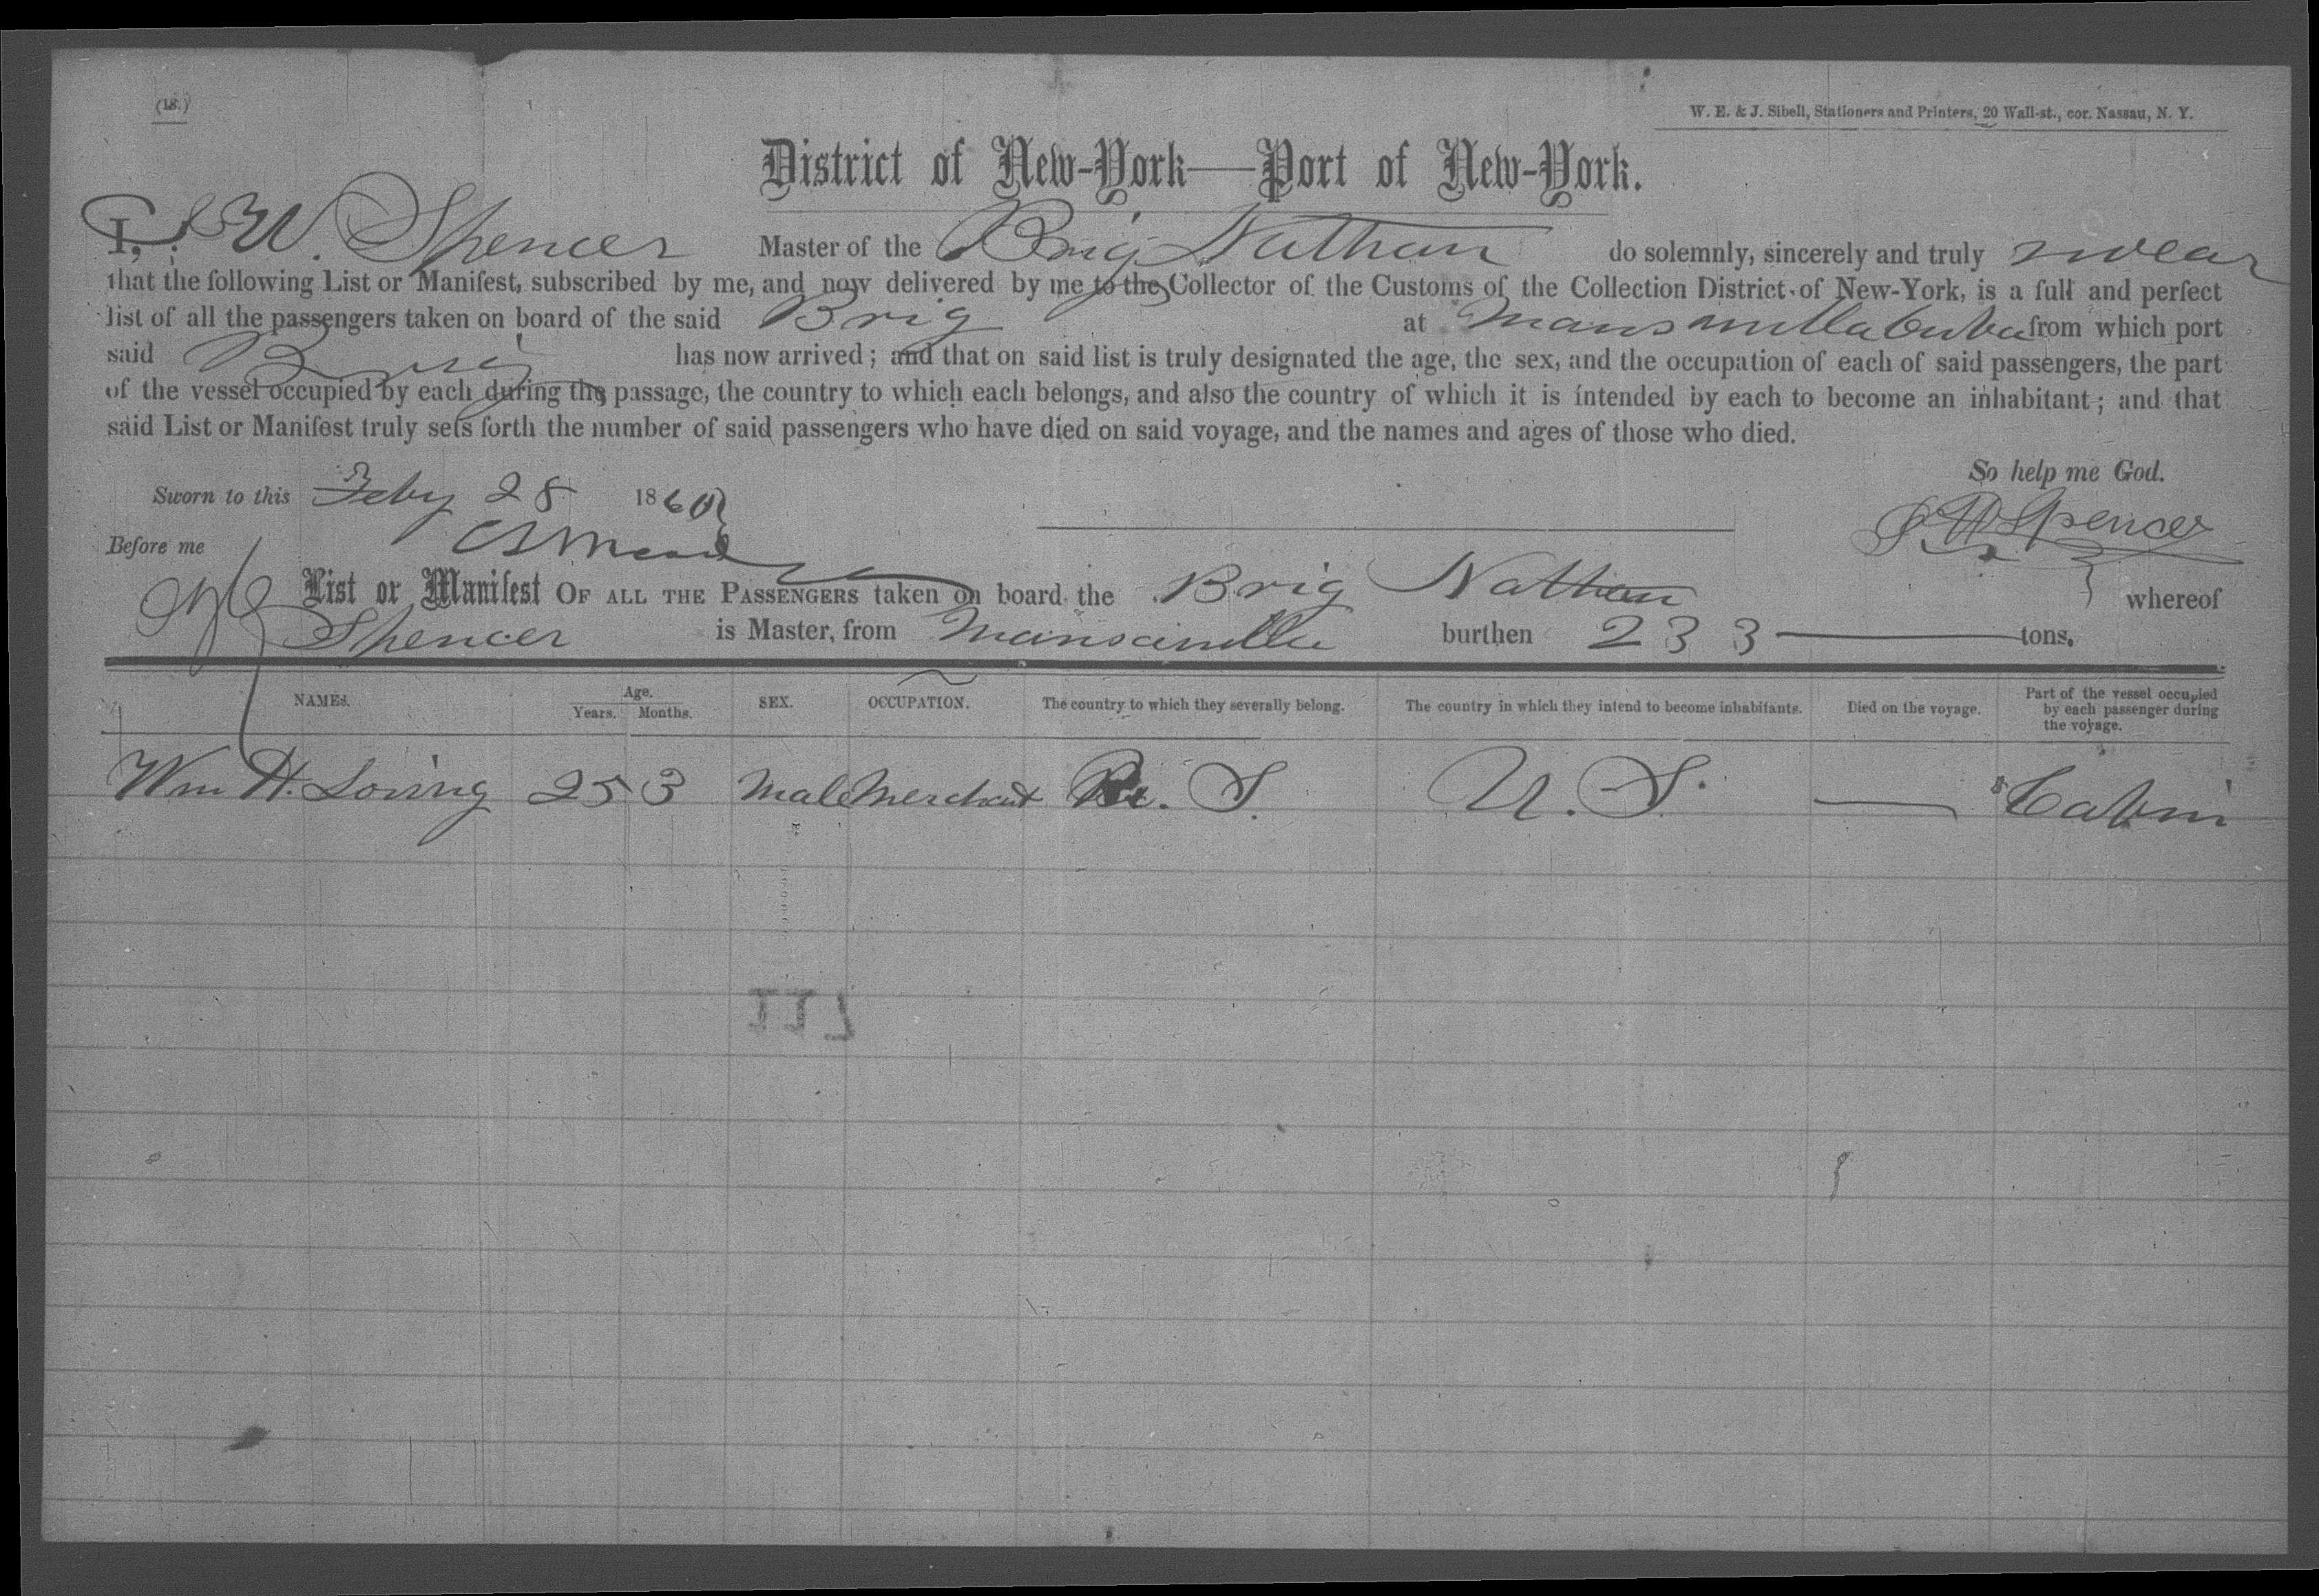 (18.)
W. E. & J. Sibell, Stationers and Printers, 20 Wall-st., cor. Nassau, N. Y.
District of New-York—Port of New-York.
I, J W. Spencer Master of the Brig Nathan do solemnly, sincerely and truly swear
that the following List or Manifest, subscribed by me, and now delivered by me to the Collector of the Customs of the Collection District of New-York, is a full and perfect
list of all the passengers taken on board of the said Brig at Mansanilla Cuba from which port
said Brig has now arrived; and that on said list is truly designated the age, the sex, and the occupation of each of said passengers, the part
of the vessel occupied by each during the passage, the country to which each belongs, and also the country of which it is intended by each to become an inhabitant; and that
said List or Manifest truly sets forth the number of said passengers who have died on said voyage, and the names and ages of those who died.
So help me God.
Sworn to this Feby 28 1860
J W Spencer
Before me
List or Manifest OF ALL THE PASSENGERS taken on board the Brig Nathan whereof
Spencer is Master, from Mansanilla burthen 233 tons.
NAMES. Age. Years. Months. SEX. OCCUPATION. The country to which they severally belong. The country in which they intend to become inhabitants. Died on the voyage. Part of the vessel occupied by each passenger during the voyage.
Wm H. Loring 25 3 Male Merchant U. S. U. S. — Cabin